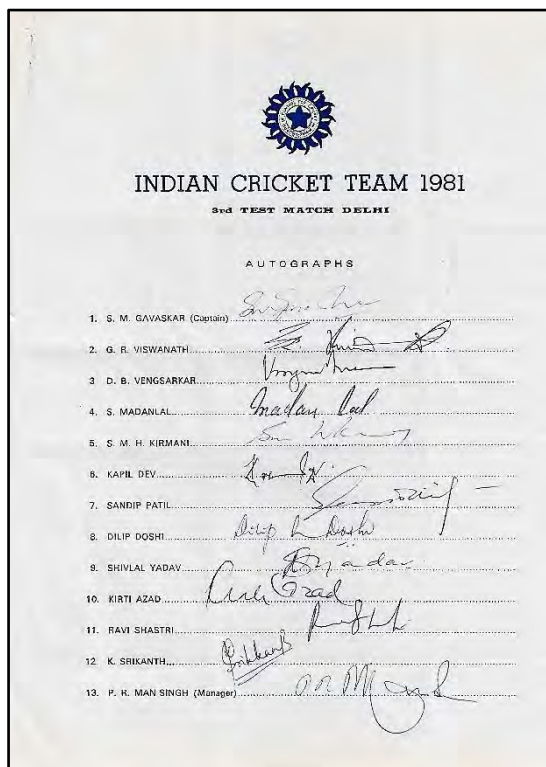 INDIAN CRICKET TEAM 1981
3rd TEST MATCH DELHI
AUTOGRAPHS
1. S. M. GAVASKAR (Captain)
2. G. R. VISWANATH
3 D. B. VENGSARKAR
4. S. MADANLAL Madan Lal
5. S. M. H. KIRMANI
6. KAPIL DEV
7. SANDIP PATIL
8. DILIP DOSHI Dilip R Doshi
9. SHIVLAL YADAV SYadav
10. KIRTI AZAD Kirti Azad
11. RAVI SHASTRI
12 K. SRIKANTH Srikkanth
13. P. R. MAN SINGH (Manager)